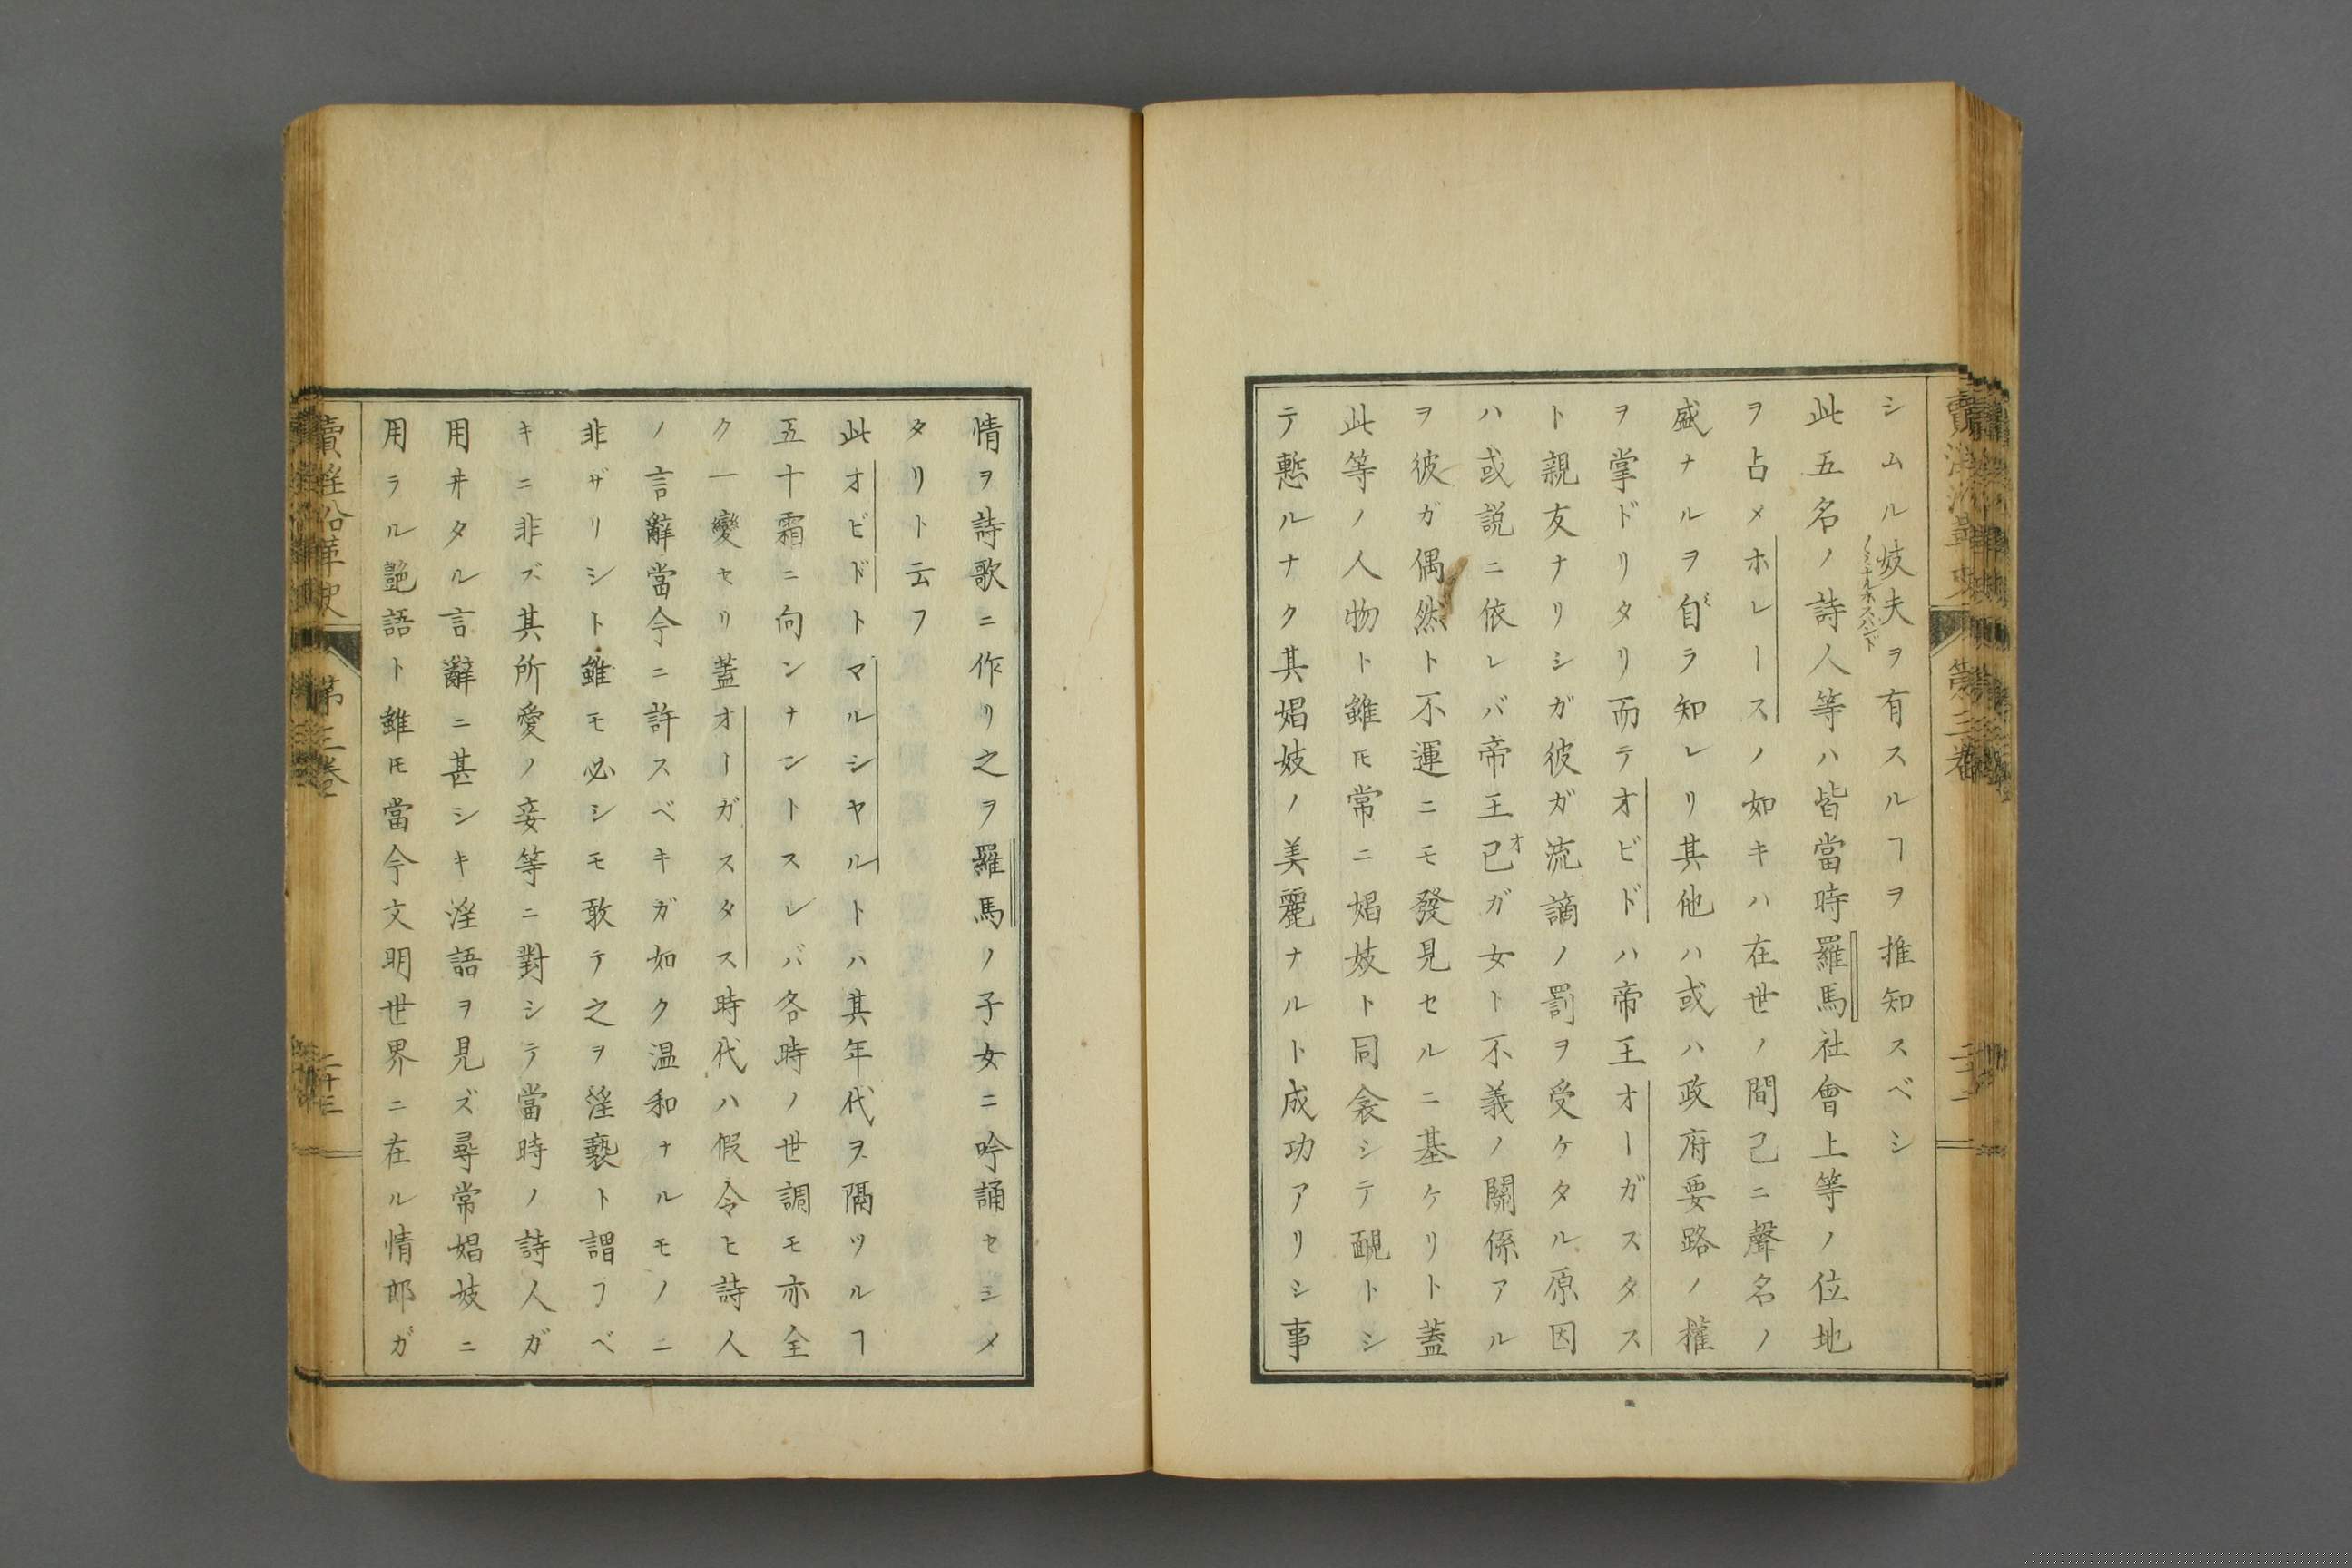 シムル妓夫ヲ有スルヿヲ推知スベシ
此五名ノ詩人等ハ皆當時羅馬社會上等ノ位地
ヲ占メホレースノ如キハ在世ノ間己ニ聲名ノ
盛ナルヲ自ミラ知レリ其他ハ或ハ政府要路ノ權
ヲ掌ドリタリ而テオビドハ帝王オーガスタス
ト親友ナリシガ彼ガ流謫ノ罰ヲ受ケタル原因
ハ或説ニ依レバ帝王己オガ女ト不義ノ關係アル
ヲ彼ガ偶然ト不運ニモ發見セルニ基ケリト蓋
此等ノ人物ト雖𪜈常ニ娼妓ト同衾シテ醜トシ
テ慙ルナク其娼妓ノ美麗ナルト成功アリシ事
情ヲ詩歌ニ作リ之ヲ羅馬ノ子女ニ吟誦セシメ
タリト云フ
此オビドトマルシヤルトハ其年代ヲ隔ツルヿ
五十霜ニ向ンナントスレバ各時ノ世調モ亦全
ク一變セリ蓋オーガスタス時代ハ假令ヒ詩人
ノ言辭當今ニ許スベキガ如ク温和ナルモノニ
非ザリシト雖モ必シモ敢テ之ヲ淫褻ト謂フベ
キニ非ズ其所愛ノ妾等ニ對シテ當時ノ詩人ガ
用ヰタル言辭ニ甚シキ淫語ヲ見ズ尋常娼妓ニ
用ラル艶語ト雖𪜈當今文明世界ニ在ル情郎ガ
賣淫沿革史 第三卷 二十三